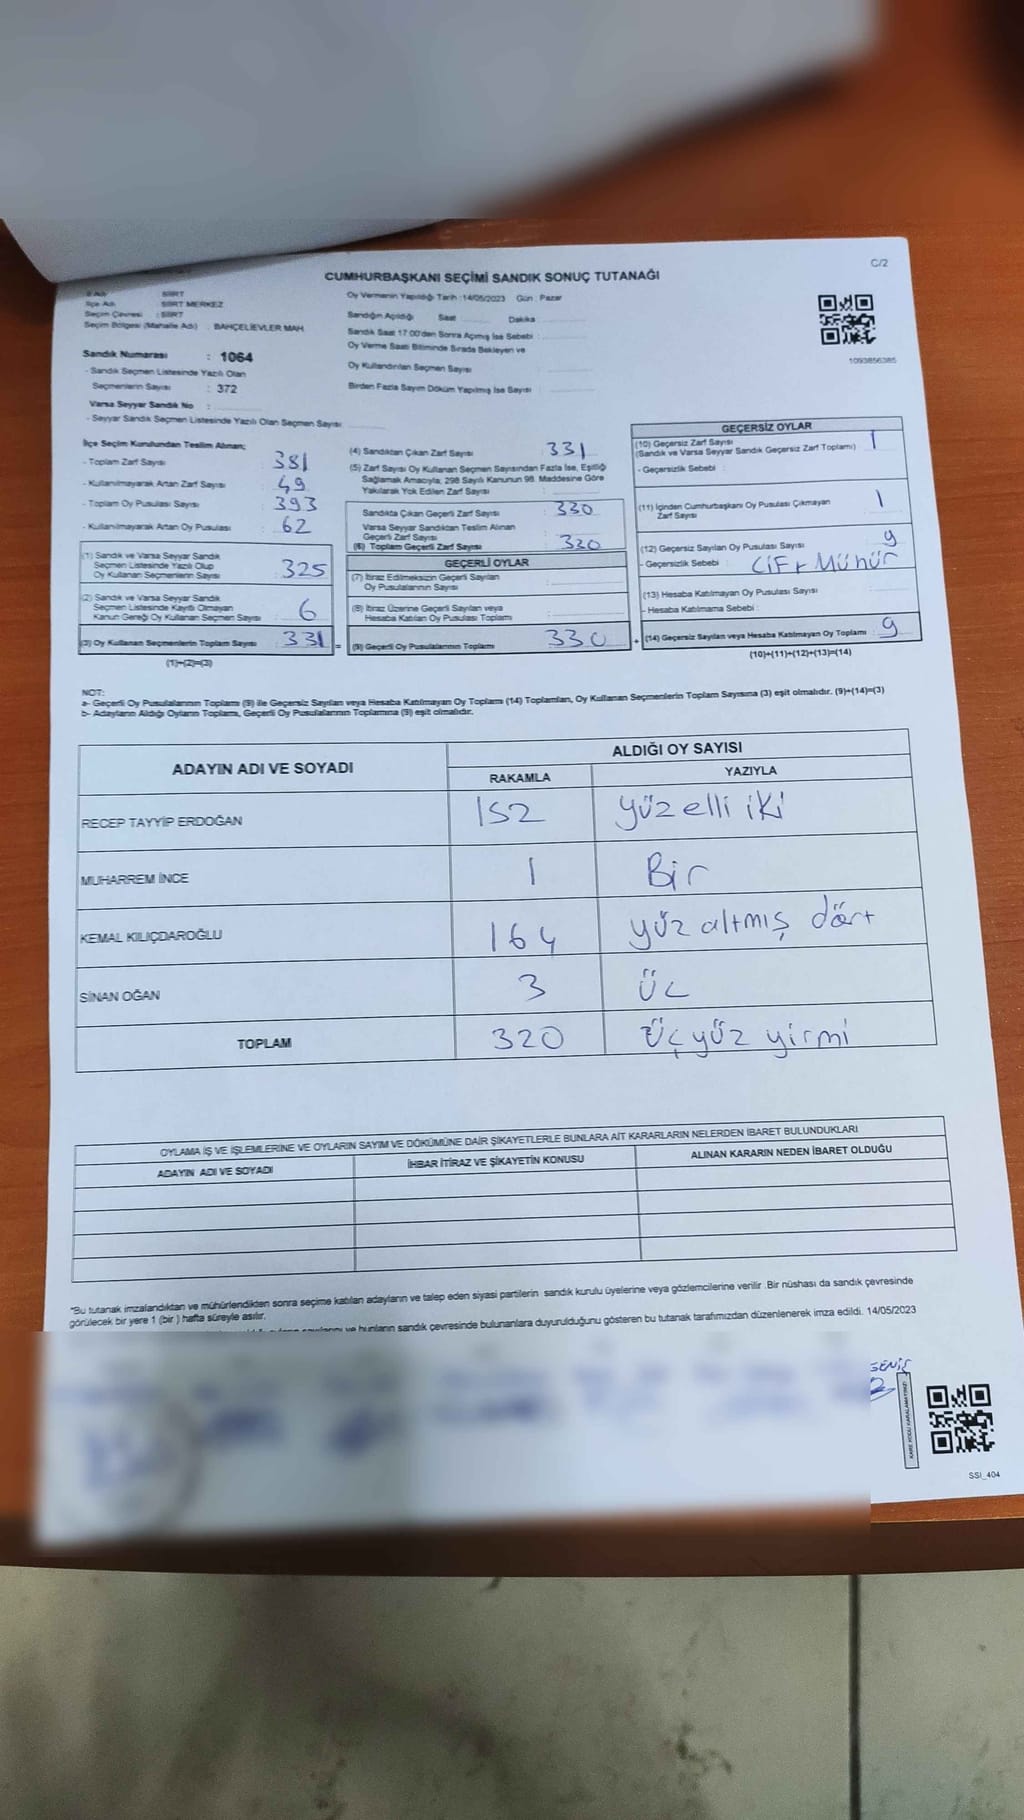 C/2
CUMHURBAŞKANI SEÇİMİ SANDIK SONUÇ TUTANAĞI
İl Adı : SİİRT
İlçe Adı : SİİRT MERKEZ
Seçim Çevresi : SİİRT
Seçim Bölgesi (Mahalle Adı) : BAHÇELİEVLER MAH.
Oy Vermenin Yapıldığı Tarih :14/05/2023 Gün : Pazar
Sandığın Açıldığı Saat Dakika
Sandık Saat 17:00'den Sonra Açılmış İse Sebebi :
Oy Verme Saati Bitiminde Sırada Bekleyen ve
Oy Kullandırılan Seçmen Sayısı :
Birden Fazla Sayım Döküm Yapılmış İse Sayısı :
1093856385
Sandık Numarası : 1064
- Sandık Seçmen Listesinde Yazılı Olan
Seçmenlerin Sayısı : 372
Varsa Seyyar Sandık No :
- Seyyar Sandık Seçmen Listesinde Yazılı Olan Seçmen Sayısı
İlçe Seçim Kurulundan Teslim Alınan;
- Toplam Zarf Sayısı : 381
- Kullanılmayarak Artan Zarf Sayısı : 49
- Toplam Oy Pusulası Sayısı : 393
- Kullanılmayarak Artan Oy Pusulası : 62
(1) Sandık ve Varsa Seyyar Sandık
Seçmen Listesinde Yazılı Olup
Oy Kullanan Seçmenlerin Sayısı : 325
(2) Sandık ve Varsa Seyyar Sandık
Seçmen Listesinde Kayıtlı Olmayan
Kanun Gereği Oy Kullanan Seçmen Sayısı : 6
(3) Oy Kullanan Seçmenlerin Toplam Sayısı : 331 =
(1)+(2)=(3)
(4) Sandıktan Çıkan Zarf Sayısı : 331
(5) Zarf Sayısı Oy Kullanan Seçmen Sayısından Fazla İse, Eşitliği
Sağlamak Amacıyla, 298 Sayılı Kanunun 98. Maddesine Göre
Yakılarak Yok Edilen Zarf Sayısı :
Sandıkta Çıkan Geçerli Zarf Sayısı : 330
Varsa Seyyar Sandıktan Teslim Alınan
Geçerli Zarf Sayısı :
(6) Toplam Geçerli Zarf Sayısı : 330
GEÇERLİ OYLAR
(7) İtiraz Edilmeksizin Geçerli Sayılan
Oy Pusulalarının Sayısı :
(8) İtiraz Üzerine Geçerli Sayılan veya
Hesaba Katılan Oy Pusulası Toplamı :
(9) Geçerli Oy Pusulalarının Toplamı : 330 +
GEÇERSİZ OYLAR
(10) Geçersiz Zarf Sayısı
(Sandık ve Varsa Seyyar Sandık Geçersiz Zarf Toplamı) : 1
- Geçersizlik Sebebi :
(11) İçinden Cumhurbaşkanı Oy Pusulası Çıkmayan
Zarf Sayısı : 1
(12) Geçersiz Sayılan Oy Pusulası Sayısı : 9
- Geçersizlik Sebebi : Çift Mühür
(13) Hesaba Katılmayan Oy Pusulası Sayısı :
- Hesaba Katılmama Sebebi :
(14) Geçersiz Sayılan veya Hesaba Katılmayan Oy Toplamı : 9
(10)+(11)+(12)+(13)=(14)
NOT:
a- Geçerli Oy Pusulalarının Toplamı (9) ile Geçersiz Sayılan veya Hesaba Katılmayan Oy Toplamı (14) Toplamları, Oy Kullanan Seçmenlerin Toplam Sayısına (3) eşit olmalıdır. (9)+(14)=(3)
b- Adayların Aldığı Oyların Toplamı, Geçerli Oy Pusulalarının Toplamına (9) eşit olmalıdır.
ADAYIN ADI VE SOYADI
ALDIĞI OY SAYISI
RAKAMLA YAZIYLA
RECEP TAYYİP ERDOĞAN 152 yüz elli iki
MUHARREM İNCE 1 Bir
KEMAL KILIÇDAROĞLU 164 yüz altmış dört
SİNAN OĞAN 3 üç
TOPLAM 320 üçyüz yirmi
OYLAMA İŞ VE İŞLEMLERİNE VE OYLARIN SAYIM VE DÖKÜMÜNE DAİR ŞİKAYETLERLE BUNLARA AİT KARARLARIN NELERDEN İBARET BULUNDUKLARI
ADAYIN ADI VE SOYADI İHBAR İTİRAZ VE ŞİKAYETİN KONUSU ALINAN KARARIN NEDEN İBARET OLDUĞU
*Bu tutanak imzalandıktan ve mühürlendikten sonra seçime katılan adayların ve talep eden siyasi partilerin sandık kurulu üyelerine veya gözlemcilerine verilir .Bir nüshası da sandık çevresinde
görülecek bir yere 1 (bir ) hafta süreyle asılır.
ve bunların sandık çevresinde bulunanlara duyurulduğunu gösteren bu tutanak tarafımızdan düzenlenerek imza edildi. 14/05/2023
KARE KODU KARALAMAYINIZ!
SSI_404